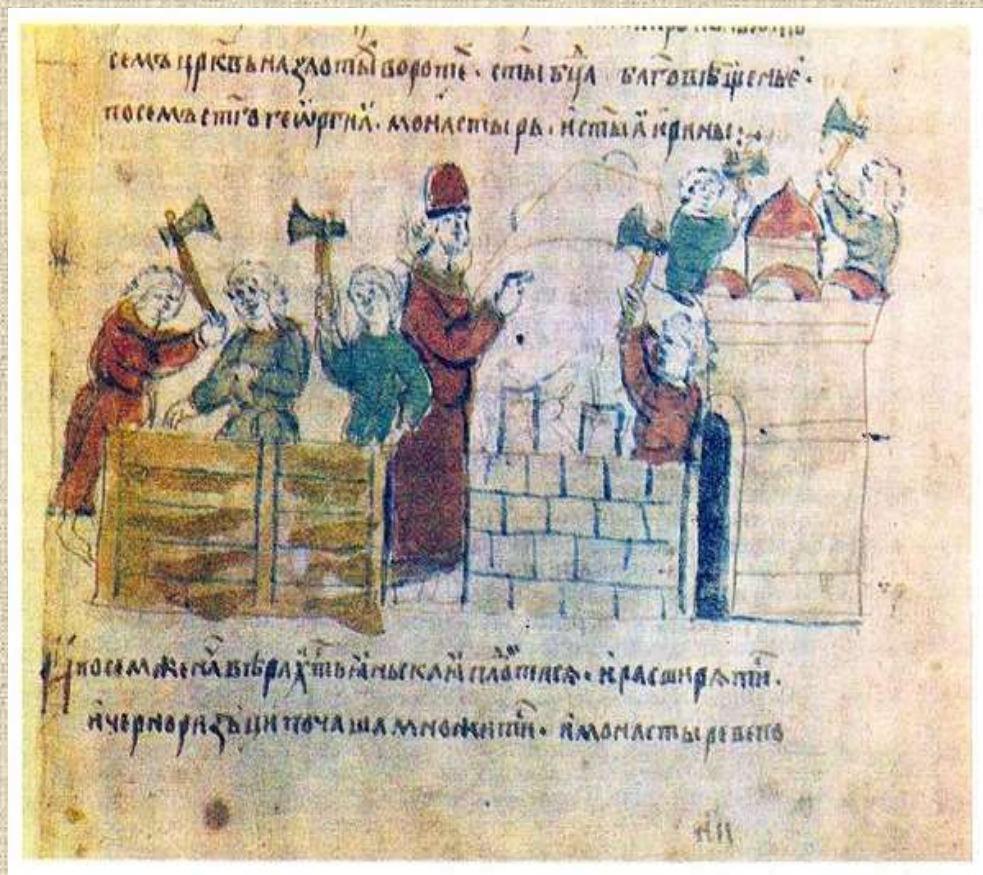 семъ црк҃вь на златы воротѣ · ст҃ы бц҃а бл҃говѣщенье ·
посемь ст҃го геѡргиꙗ · монастырь · и ст҃ыꙗ ирины :·
И посемже нача вѣра хр҃тьꙗньскаꙗ плодитисѧ · и расширѧти ·
и черноризьци почаша множити · и монастыреве по